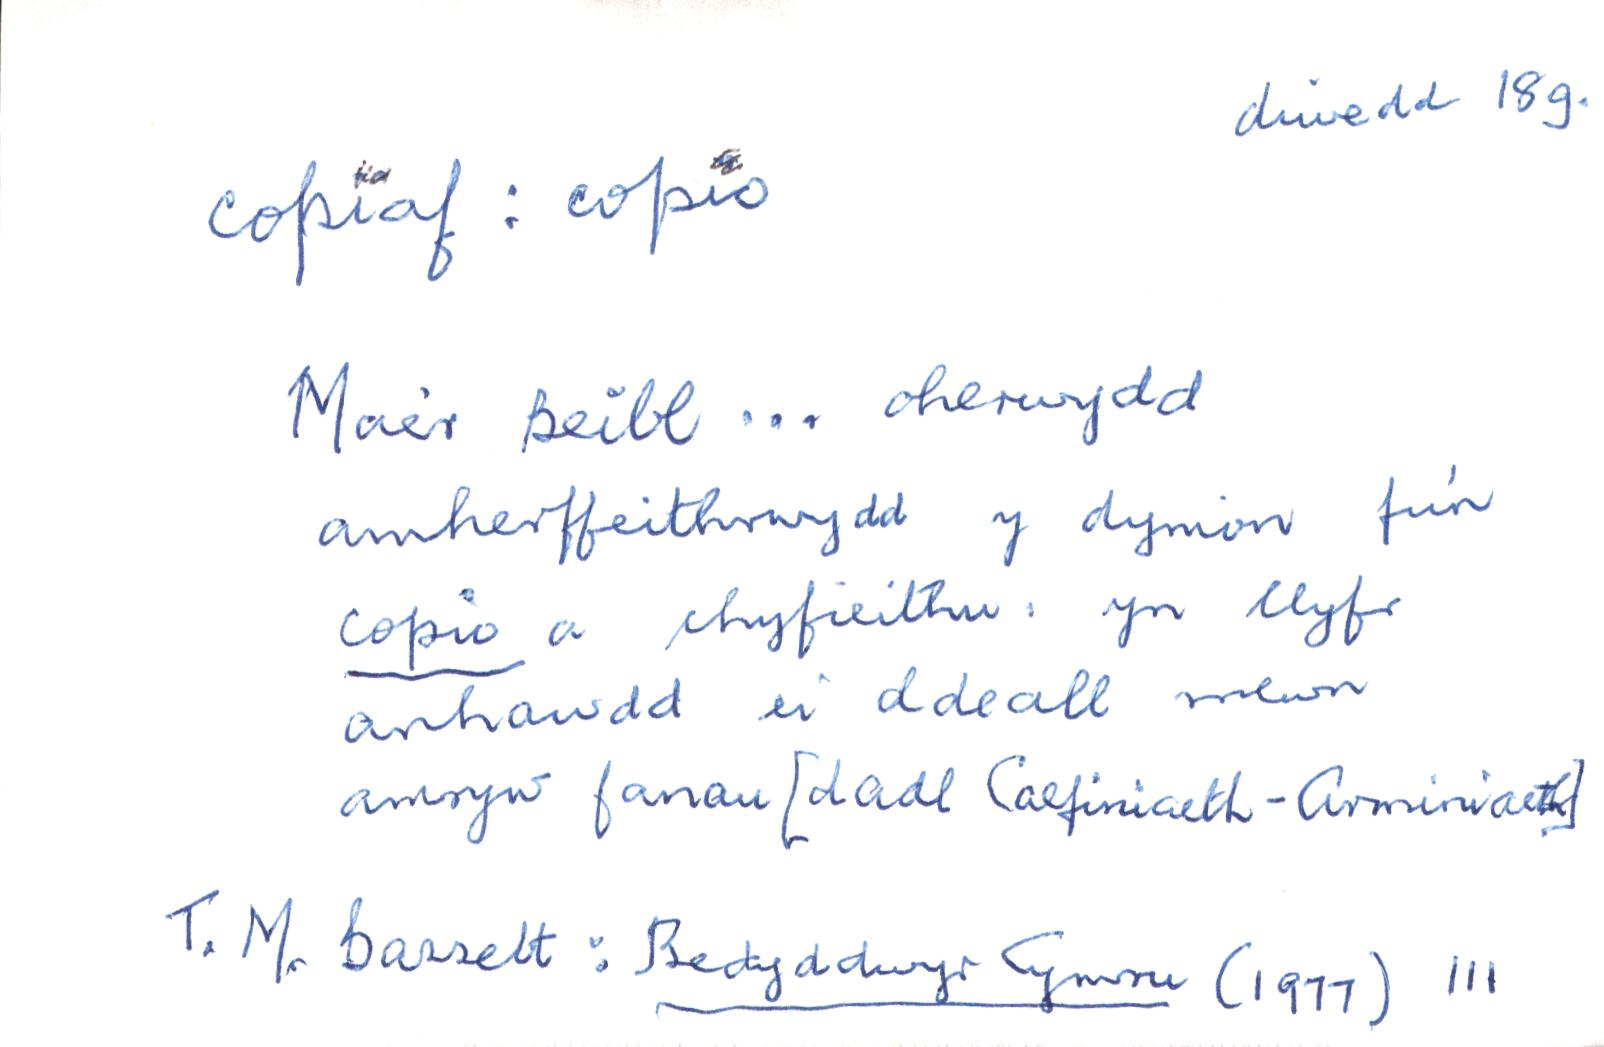 diwedd 18g.
copïaf : copïo
Mae'r Beibl ... oherwydd
amherffeithrwydd y dynion fu'n
copio a chyfieithu : yn llyfr
anhawdd ei ddeall mewn
amryw fanau [dadl Calfiniaeth - Arminiaeth]
T. M. Bassett : Bedyddwyr Cymru (1977) 111